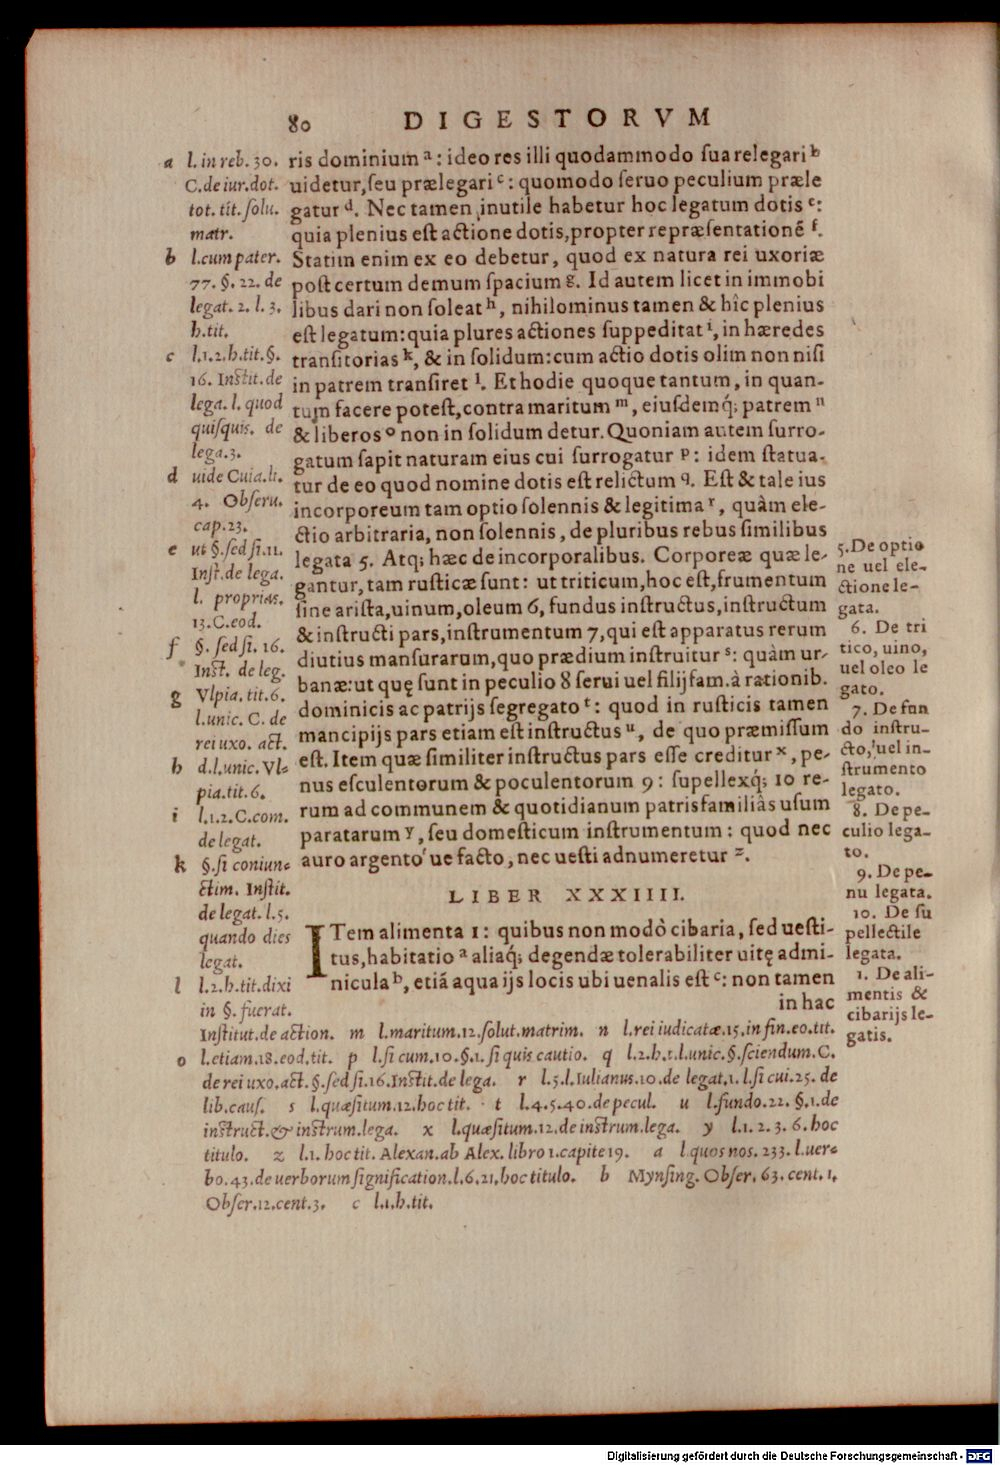 80 DIGESTORVM
ris dominium a : ideo res illi quodammodo sua relegari b
uidetur, seu prælegari c : quomodo seruo peculium præle
gatur d. Nec tamen inutile habetur hoc legatum dotis e:
quia plenius est actione dotis, propter repræsentationē f.
Statim enim ex eo debetur, quod ex natura rei uxoriæ
post certum demum spacium g. Id autem licet in immobi
libus dari non soleat h, nihilominus tamen & hîc plenius
est legatum: quia plures actiones suppeditat i, in hæredes
transitorias k, & in solidum: cum actio dotis olim non nisi
in patrem transiret l. Et hodie quoque tantum, in quan-
tum facere potest, contra maritum m, eiusdemq́; patrem n
& liberos o non in solidum detur. Quoniam autem surro-
gatum sapit naturam eius cui surrogatur p : idem statua-
tur de eo quod nomine dotis est relictum q. Est & tale ius
incorporeum tam optio solennis & legitima r, quàm ele-
ctio arbitraria, non solennis, de pluribus rebus similibus
legata 5. Atq; hæc de incorporalibus. Corporeæ quæ le-
gantur, tam rusticæ sunt: ut triticum, hoc est, frumentum
sine arista, uinum, oleum 6, fundus instructus, instructum
& instructi pars, instrumentum 7, qui est apparatus rerum
diutius mansurarum, quo prædium instruitur s: quàm ur-
banæ: ut quę sunt in peculio 8 serui uel filij fam. à rationib.
dominicis ac patrijs segregato t: quod in rusticis tamen
mancipijs pars etiam est instructus u, de quo præmissum
est. Item quæ similiter instructus pars esse creditur x, pe-
nus esculentorum & poculentorum 9 : supellexq́; 10 re-
rum ad communem & quotidianum patrisfamiliâs usum
paratarum y, seu domesticum instrumentum: quod nec
auro argento ue facto, nec uesti adnumeretur z.
LIBER XXXIIII.
ITem alimenta 1 : quibus non modò cibaria, sed uesti-
tus, habitatio a aliaq́; degendæ tolerabiliter uitę admi-
nicula b, etiá aqua ijs locis ubi uenalis est c: non tamen
in hac
a l. in reb. 30.
C. de iur. dot.
tot. tit. solu.
matr.
b l. cum pater.
77. §. 22. de
legat. 2. l. 3.
h. tit.
c l. 1. 2. h. tit. §.
16. Instit. de
lega. l. quod
quisquis. de
lega. 3.
d uide Cuia. li.
4. Obseru.
cap. 23.
e ut §. sed si. 11.
Inst. de lega.
l. proprias.
13. C. eod.
f §. sed si. 16.
Inst. de leg.
g Vlpia. tit. 6.
l. unic. C. de
rei uxo. act.
h d. l. unic. Vl-
pia. tit. 6.
i l. 1. 2. C. com.
de legat.
k §. si coniun-
ctim. Instit.
de legat. l. 5.
quando dies
legat.
l l. 2. h. tit. dixi
in §. fuerat.
Institut. de action. m l. maritum. 12. solut. matrim. n l. rei iudicatæ. 15. in fin. eo. tit.
o l. etiam. 18. eod. tit. p l. si cum. 10. §. 1. si quis cautio. q l. 2. h. t. l. unic. §. sciendum. C.
de rei uxo. act. §. sed si. 16. Instit. de lega. r l. 5. l. Iulianus. 10. de legat. 1. l. si cui. 25. de
lib. caus. s l. quæsitum. 12. hoc tit. t l. 4. 5. 40. de pecul. u l. fundo. 22. §. 1. de
instruct. & instrum. lega. x l. quæsitum. 12. de instrum. lega. y l. 1. 2. 3. 6. hoc
titulo. z l. 1. hoc tit. Alexan. ab Alex. libro 1. capite 19. a l. quos nos. 233. l. uer-
bo. 43. de uerborum signification. l. 6. 21. hoc titulo. b Mynsing. Obser. 63. cent. 1.
Obser. 12. cent. 3. c l. 1. h. tit.
5. De optio
ne uel ele-
ctione le-
gata.
6. De tri
tico, uino,
uel oleo le
gato.
7. De fun
do instru-
cto, uel in-
strumento
legato.
8. De pe-
culio lega-
to.
9. De pe-
nu legata.
10. De su
pellectile
legata.
1. De ali-
mentis &
cibarijs le-
gatis.
Digitalisierung gefördert durch die Deutsche Forschungsgemeinschaft - DFG